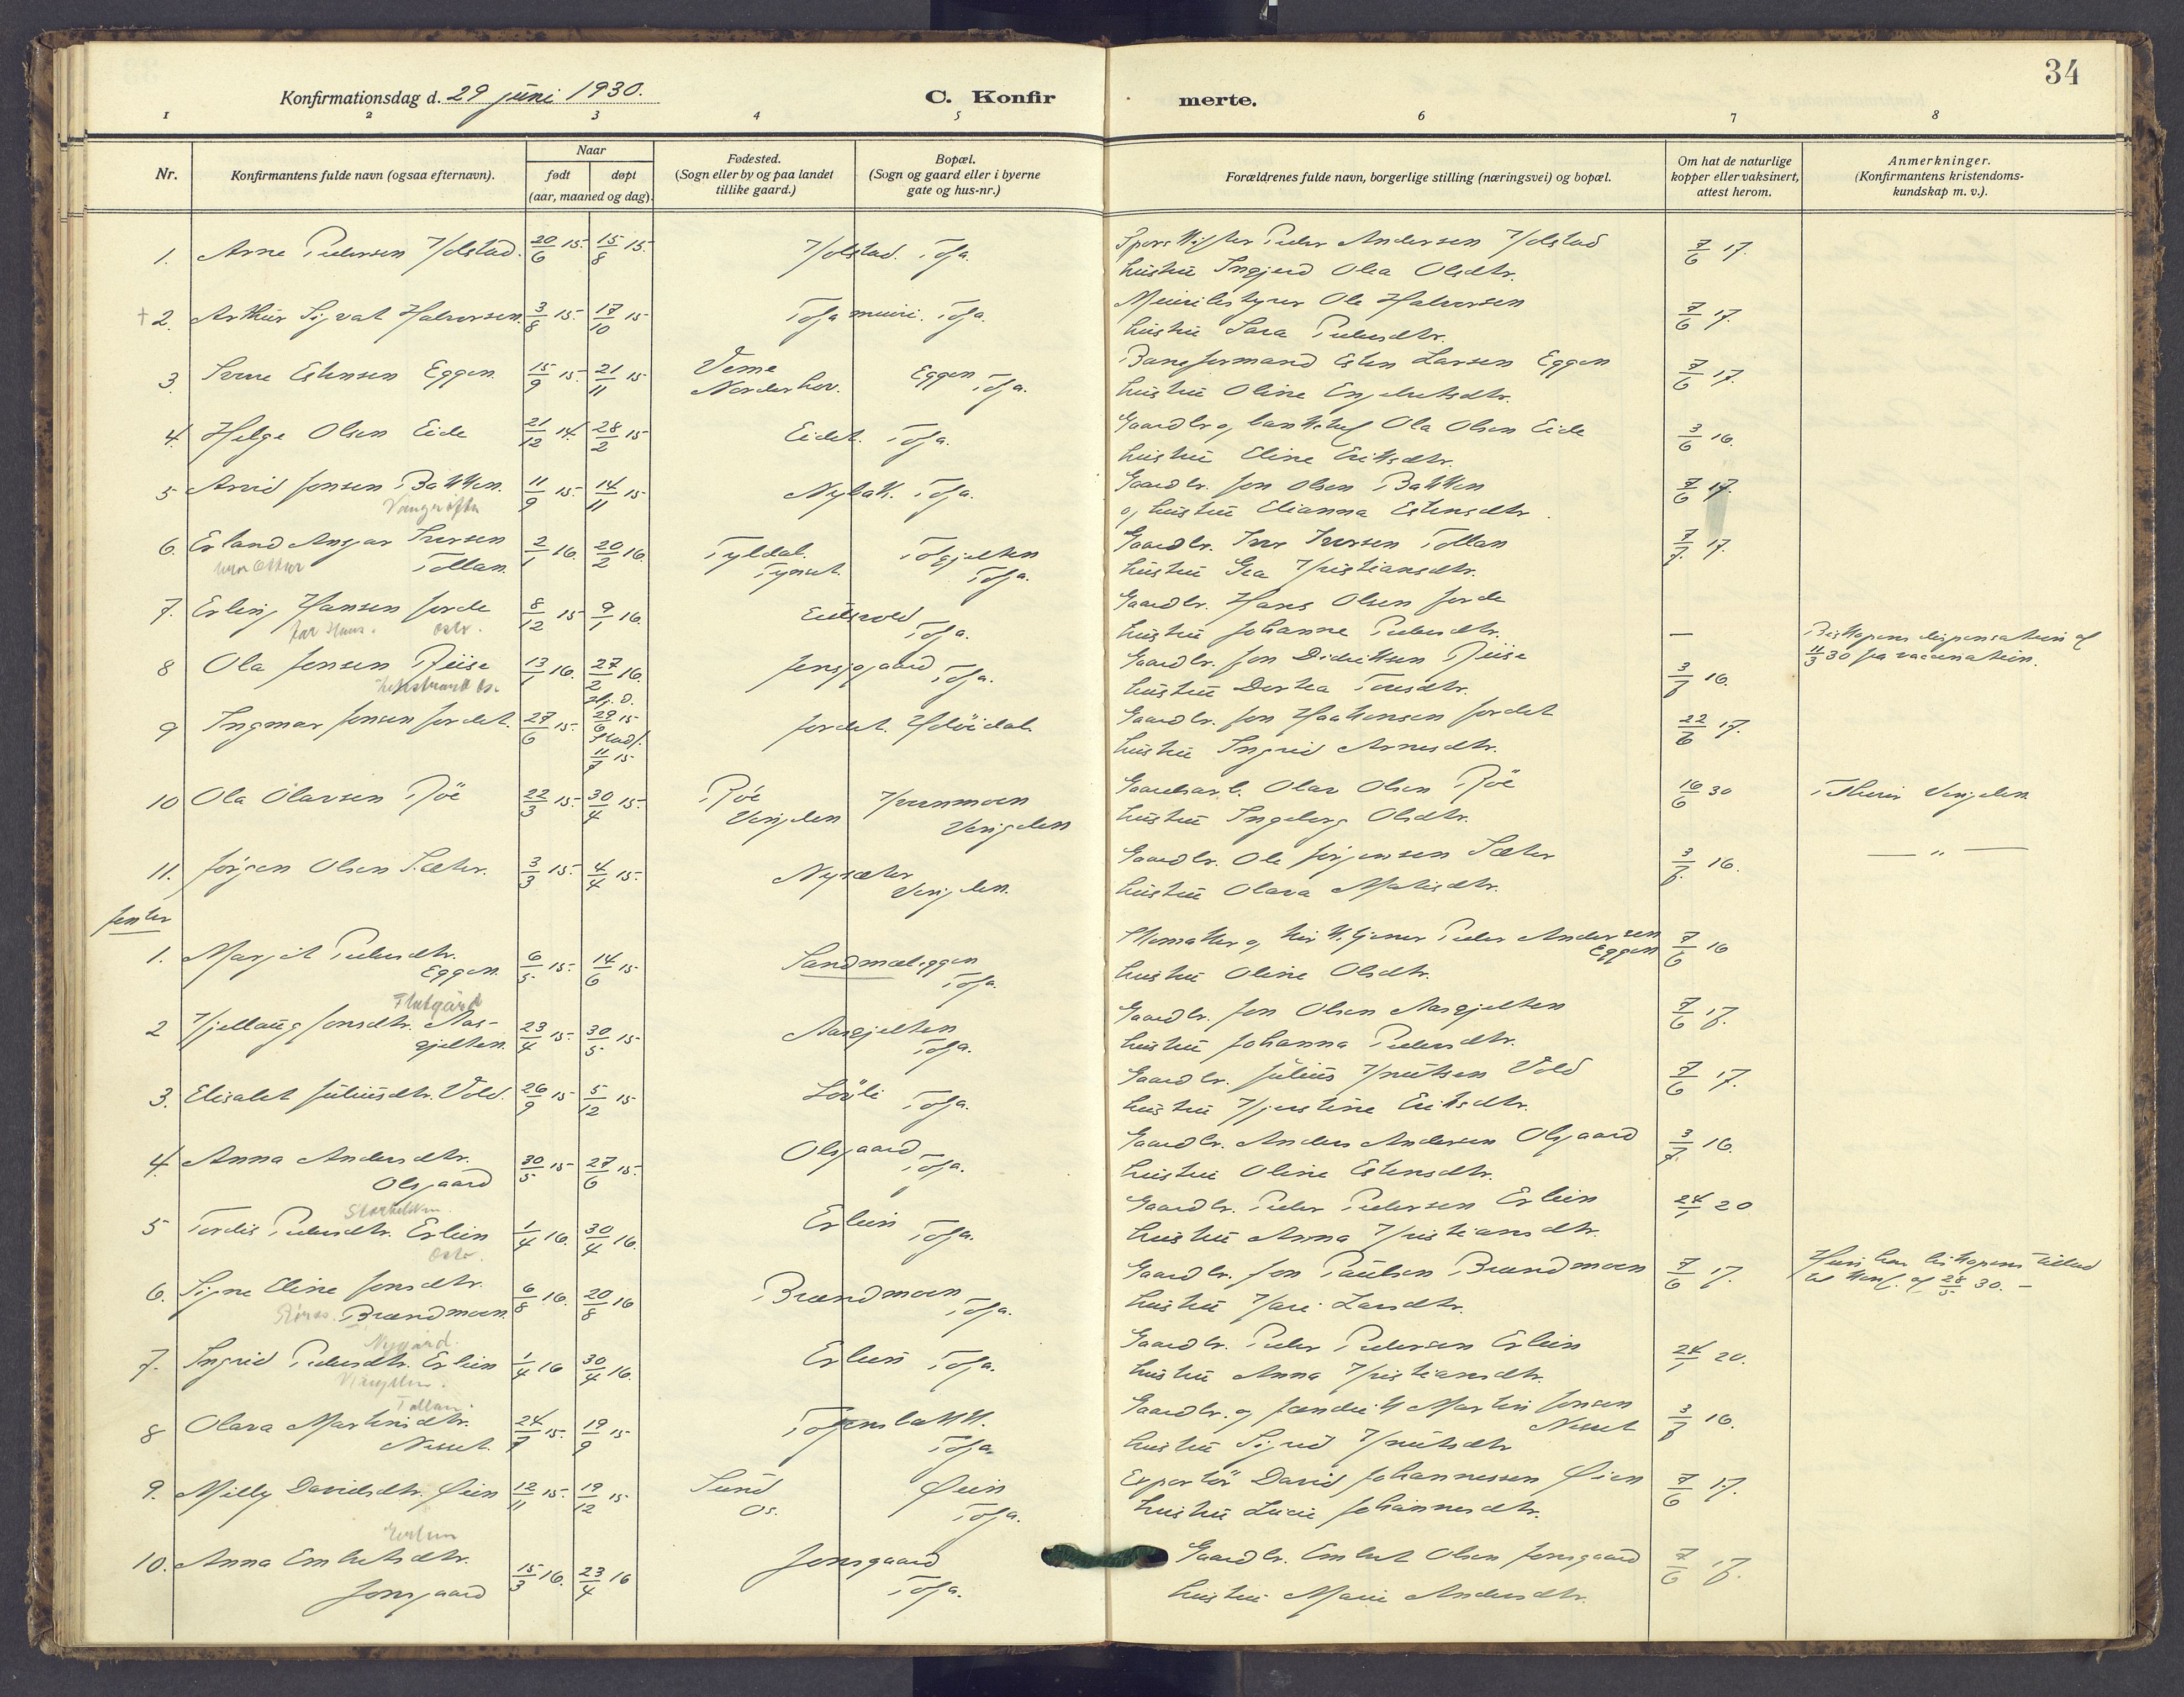 34
Konfirmationsdag d. 29 juni 1930.
C. Konfir
merte.
1 2 3 4 5 6 7 8
Nr.
Konfirmantens fulde navn (ogsaa efternavn).
Naar
født
døpt
(aar, maaned og dag).
Fødested.
(Sogn eller by og paa landet
tillike gaard.)
Bopæl.
(Sogn og gaard eller i byerne
gate og hus-nr.)
Forældrenes fulde navn, borgerlige stilling (næringsvei) og bopæl.
Om hat de naturlige
kopper eller vaksinert,
attest herom.
Anmerkninger.
(Konfirmantens kristendoms-
kundskap m. v.).
1. Arne Pedersen Kolstad. 20/6 15. 15/8 15. Kolstad. Tolga. Peder Andersen Kolstad 7/6 17.
hustru Ingjerd Olea Olsdtr.
+ 2. Arthur Sigvat Halvorsen. 3/8 15. 17/10 15 Tolga meieri. Tolga. Meieribestyrer Ole Halvorsen 7/6 17.
hustru Sara Pedersdtr.
3. Sverre Estensen Eggen. 15/9 15. 21/11 15 Veme Eggen Baneformand Esten Larsen Eggen 7/6 17.
Norderhov. Tolga. hustru Oline Engebretsdtr.
4. Helge Olsen Eide 21/12 14. 28/2 15 Eidet. Tolga. Gaardbr. og Ola Olsen Eide 3/6 16.
hustru Eline Eriksdtr.
5 Arvid Jonsen Bakken. 11/9 15. 14/11 15 Nybakk. Tolga. Gaardbr. Jon Olsen Bakken 7/6 17.
og hustru Elianna Estensdtr.
6. Erland Ansgar Iversen 2/1 16. 20/2 16. Tyldal. Tolgjelten Gaardbr. Iver Iversen Tollan 7/7. 17.
Tollan. Tynset. Tolga. hustru Gea Kristiansdtr.
7. Erling Hansen Jorde 8/12 15 9/1 16. Eidsvold Gaardbr. Hans Olsen Jorde
Tolga. hustru Johanne Pedersdtr. — Biskopens dispensation af
11/3 30 fra vaccination.
8 Ola Jonsen Riise 13/1 16. 27/2 16. Jensgaard Tolga. Gaardbr. Jon Didriksen Riise 3/6 16.
hustru Dortea Toresdtr.
9 Ingmar Jonsen Jordet. 27/6 15. hj. d. 29/6 15 Stadf. 11/7 15 Jordet. Holöidal. Gaardbr. Jon Haakensen Jordet 22/6 17.
hustru Ingrid Arnesdtr.
10 Ola Olavsen Röe 22/3 15. 30/4 15. Röe Kvennmoen Olav Olsen Röe 16/6 30 Vingelen
Vingelen Vingelen hustru Ingeborg Olsdtr.
11. Jörgen Olsen Sæter. 3/3 15. 4/4 15. Nysæter Gaardbr. Ole Jörgensen Sæter 3/6 16. — „ —
Vingelen. hustru Olava Mattisdtr.
Jenter
1. Margit Pedersdtr. 6/5 15. 14/6 15 Sandmæleggen Peder Andersen 7/6 16
Eggen. Tolga. Eggen
hustru Oline Olsdtr.
2 Kjellaug Jonsdtr. Aas- 23/4 15. 30/5 15 Aasgjelten Gaardbr. Jon Olsen Aasgjelten 7/6 17.
gjelten. Tolga. hustru Johanna Pedersdtr.
3. Elisabet Juliusdtr. Vold. 26/9 15 5/12 15 Lövli Tolga. Gaardbr. Julius Knutsen Vold 7/6 17.
hustru Kjerstine Eriksdtr.
4 Anna Andersdtr. 30/5 15 27/6 15. Olsgaard Tolga. Gaardbr. Anders Andersen Olsgaard 3/7 16.
Olsgaard hustru Oline Estensdtr.
5 Tordis Pedersdtr. Erlien 1/4 16. 30/4 16. Erlien Tolga. Gaardbr. Peder Pedersen Erlien 24/1 20
hustru Anna Kristiansdtr.
6. Signe Eline Jonsdtr. 6/8 16. 20/8 16 Brændmoen Gaardbr. Jon Paulsen Brændmoen 7/6 17. Hun har biskopens tillad.
Brændmoen. Tolga. hustru Kari Larsdtr. til konf. af 28/5 30. –
Nygård.
7. Ingrid Pedersdtr. Erlien 1/4 16 30/4 16. Erlien Tolga. Gaardbr. Peder Pedersen Erlien 24/1 20.
hustru Anna Kristiansdtr.
Tollan.
8 Olava Martinsdtr. 24/7 15. 19/9 15 Tolgensbakk. Gaardbr. og Martin Jonsen 3/6 16.
Nesset. Tolga. Nesset
hustru Sigrid Knutsdtr
9. Milly Davidsdtr. Øien 12/11 15. 19/12 15 Sund Øien Expeditör David Johannessen Øien 7/6 17.
Os. Tolga. hustru Lucie Johannesdtr.
10. Anna Embretsdtr. 15/3 16. 23/4 16 Jonsgaard Gaardbr. Embret Olsen Jonsgaard 7/6 17.
Jonsgaard Tolga. hustru Marie Andersdtr.